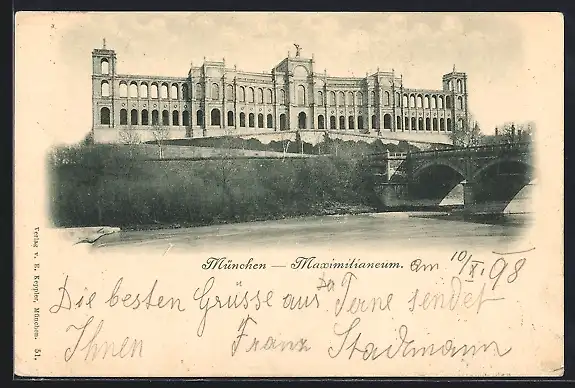 München — Maximilianeum. Am 10/IX 98
Die besten Grüsse aus Da Ferne sendet
Ihnen Franz Stadtmann
Verlag v. E. Keppler, München. 51.